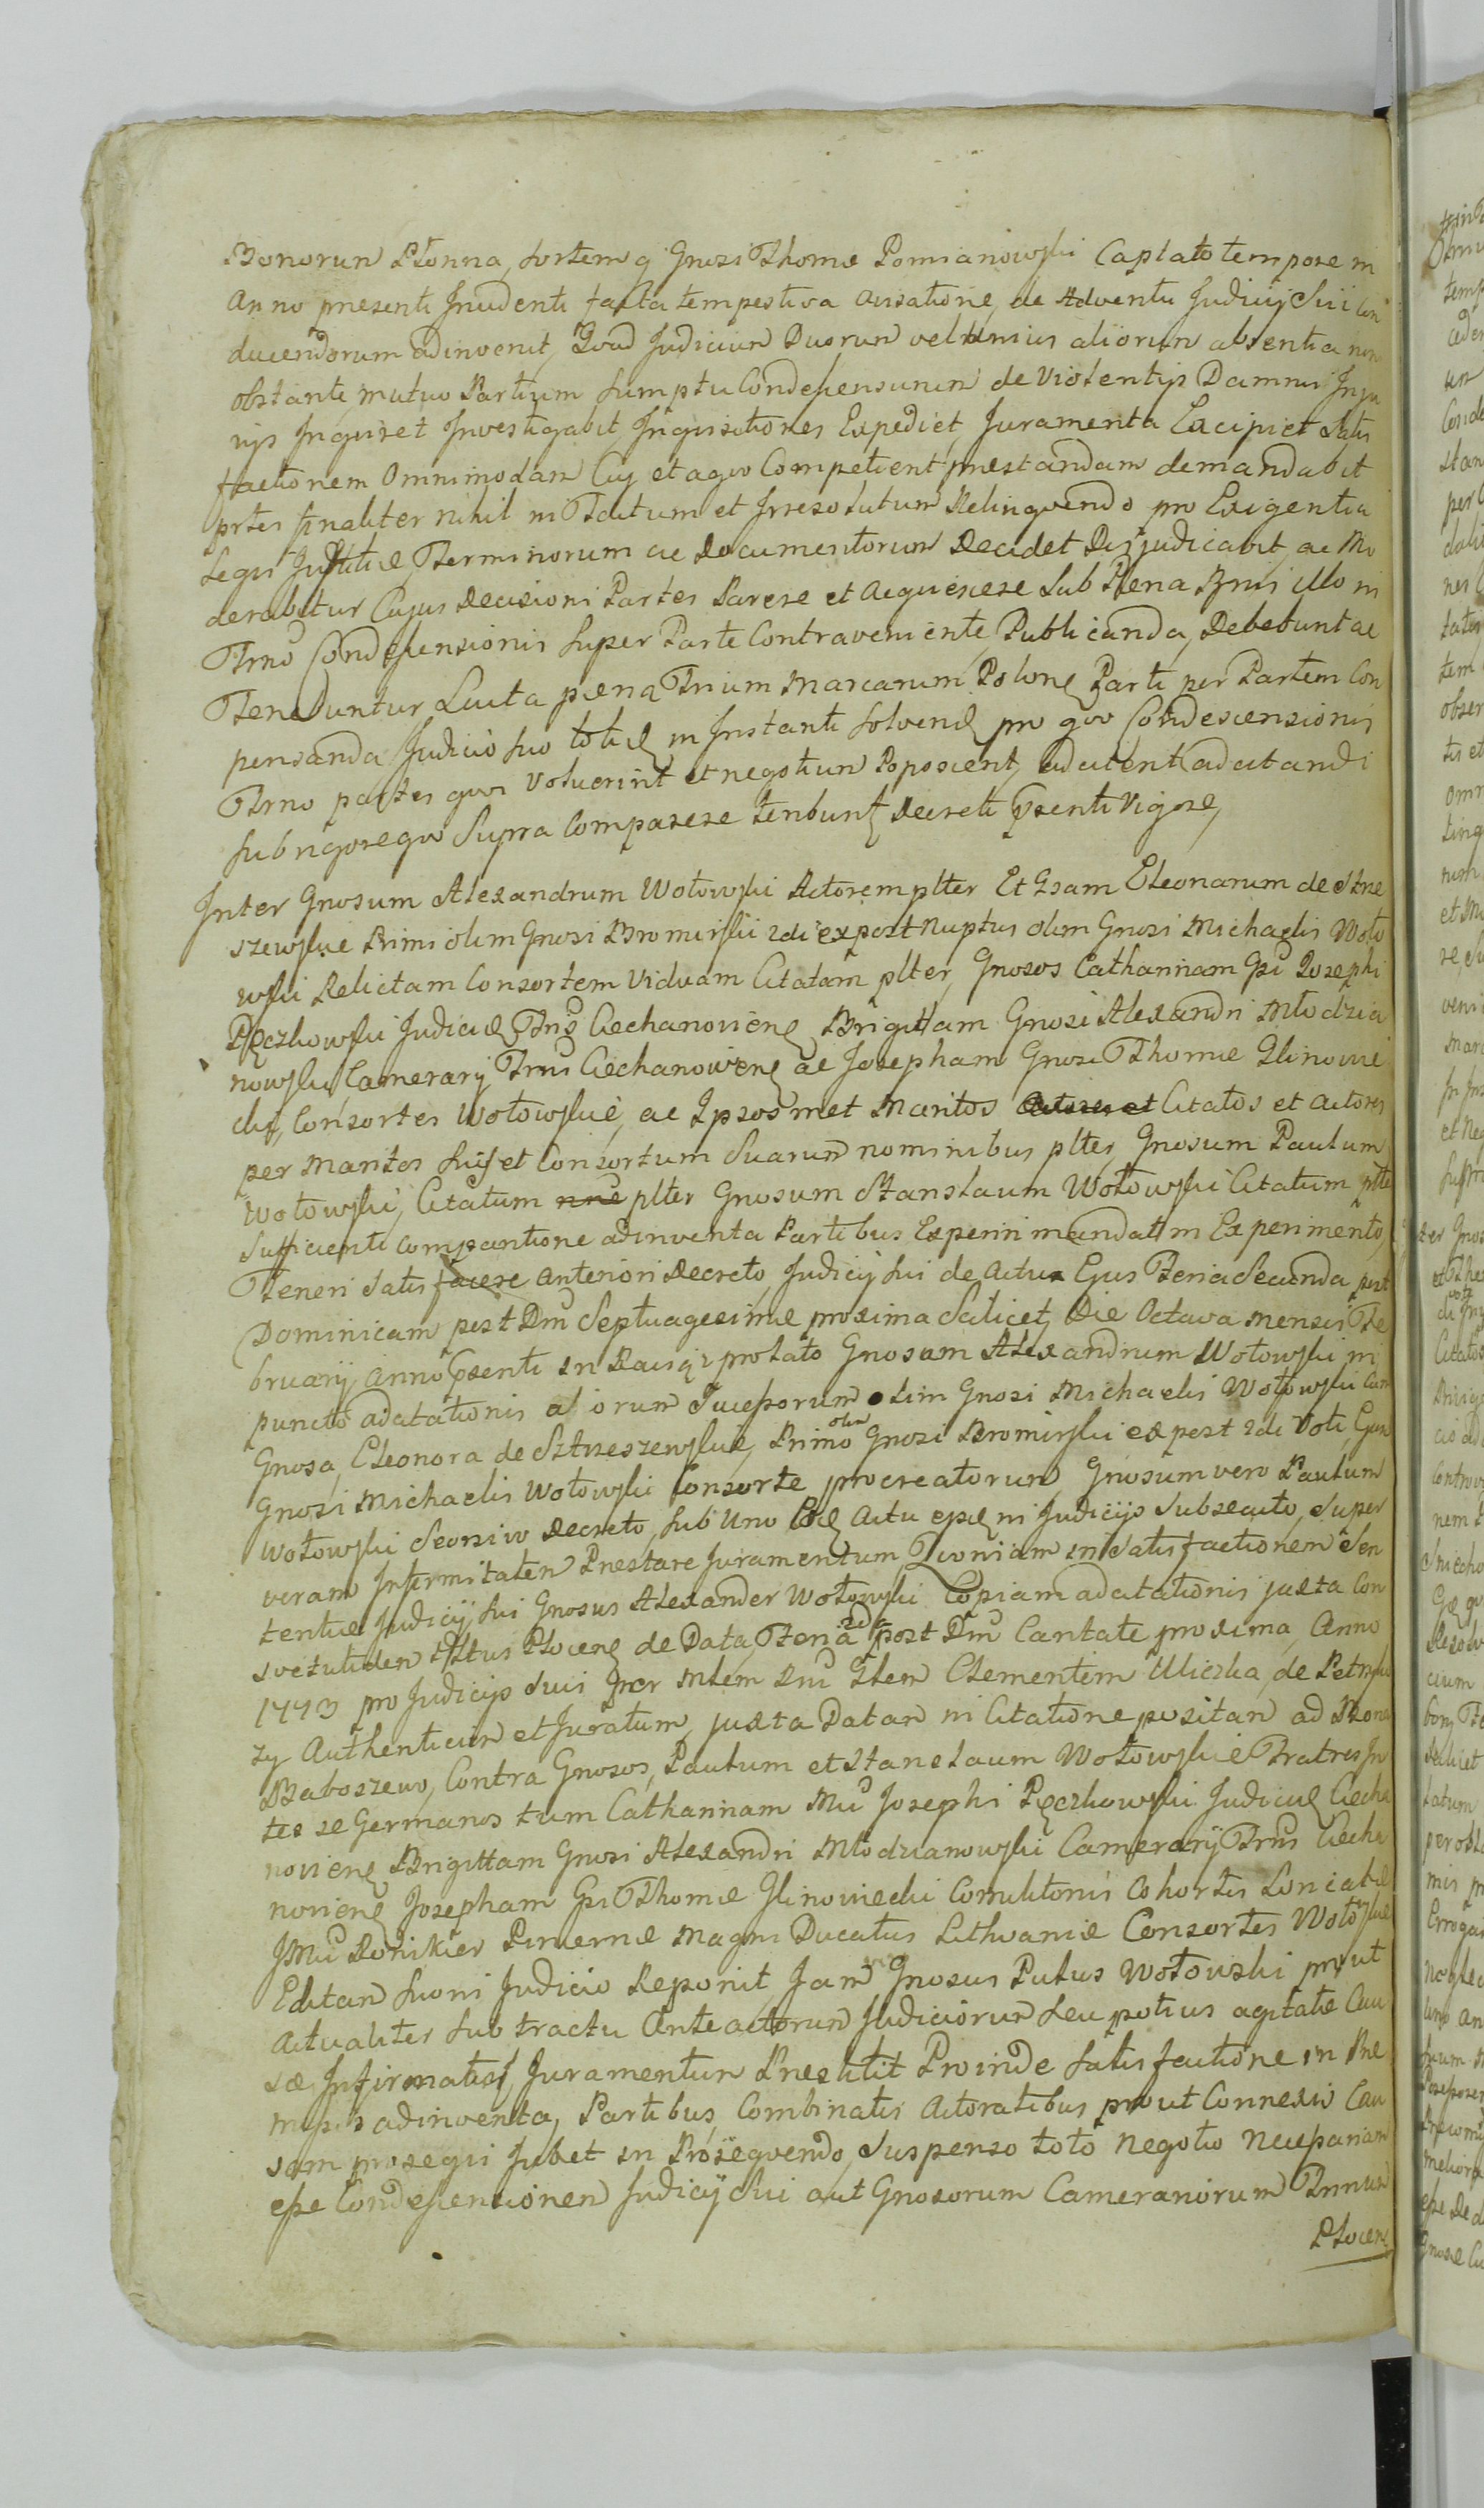 Bonorum Płonna, sortemq Gnosi Thomæ Pomianowski Captato tempore in
Anno presenti Incidenti facta tempestiva avisatione, de Adventu Judicij Sui Con
ducendorum adinvenit, Quod Judicium Duorum vel Unius aliorum absentia non
obstante, mutuo Partium Sumptu Condescensurum de Violentijs Damnis Inju
rijs Inquiret Investigabit, Inquisitiones Expediet, Juramenta Excipiet Satis
factionem Omnimodam Cuj et a quo Competient prestandam demandabit
prtes finaliter nihil in Fatum et Irresolutum Relinquendo pro Exigentia
Legis Justitiæ, Terminorum ac Documentorum Decidet Dizjudicabit, ac Mo
derabitur Cujus Decisioni Partes Parere et Acquiescere Sub Pena Bnis illo in
Trno Condescensionis super Parte Contraveniente, Publicanda, Debebunt ac
Tenebuntur Luita pæna Trium Marcarum Polonę Parti per Partem Con
pensanda Judicio suo totię in Instanti solvenę pro quo Condescensionis
Trno partes quos Voluerint et negotium Poposcent, adcitent adcitandi
sub rigore quo Supra Comparere tenbunt Decreti Psenti Vigore,
Inter Gnosum Alexandrum Wołowski Actorem plter Et Gsam Eleonoram de Strze
szewskie Primi olim Gnosi Bromirski 2di expost Nuptus olim Gnosi Michaelis Woło
wski Relictam Consortem Viduam Citatam plter, Gnosos Catharinam Gsi Josephi
Pęczkowski Judicię Trns Ciechanovienę, Brigittam Gnosi Alexandri Młodzia
nowski, Camerarij Trns Ciechanovienę ac Josepham Gnosi Thomæ Glinowie
cki, Consortes Wołowskie, ac Ipsosmet Maritos Actores et Citatos et Actores
per Maritos suos et Consortum Suarum nominibus plter, Gnosum Paulum
Wołowski, Citatum nne plter Gnosum Stanislaum Wołowski Citatum plte
Sufficienti Comparitione adinventa Partibus Experiri mandat in Experimento,
Teneri Satisfacere Anteriori Decreto, Judicij sui de Actu Ejus Feria Secunda post
Dominicam post Dni Septuagesimæ proxima Scilicet, Die Octava mensis Fe
bruarij, Anno Psenti in prolato Gnosum Alexandrum Wołowski in
puncto adcitationis aliorum Succesorum olim Gnosi Michaelis Wołowski Cum
Gnosa, Eleonora de Strzeszewskie, Primo olim Gnosi Bromirski ex post 2di Voti, Ejus
Gnosi Michaelis Wołowski Consorte procreatorum, Gnosum vero Paulum
Wołowski Seorsivo Decreto, sub Uno Actu in Judicijs Subsecuto, super
veram Infirmitatem Prestare Juramentum, Quoniam in Satisfactionem Sen
tentiæ Judicij sui Gnosus Alexander Wołowski Copiam adcitationis juxta Con
svetutidem Plocenę de Data, Feria 2da post Dni Cantate proxima, Anno
1773 pro Judicijs suis per Mlem Clementem Uliczka, de Petryko
zy Authenticum et Juratum, juxta Datam in Citatione positam ad Bona
Baboszewo, Contra Gnosos, Paulum et Stanislaum Wołowskie Fratres In
ter se Germanos tum Catharinam Josephi Pęczkowski Judicię Ciecha
novienę Brigittam Gnosi Alexandri Młodzianowski Camerarij Trns Ciecha
novienę Josepham Gsi Thomæ Glinowiecki Comilitonis Cohortis Loricatæ
Ronikier Pincernæ Magni Ducatus Lithvaniæ Consortes Wołowskie
Editam suoni Judicio Reponit, Jam Gnosus Pulus Wołowski prout
Actualiter sub tractu Anteactorum Judiciorum seu potius agitatæ Cau
sæ Infirmatis, Juramentum Prestitit Proinde Satisfactione in Pre
mijsis adinventa, Partibus, Combinatis Actoratibus prout Connexis Cau
sam prosequi Jubet in Prosequendo, Suspenso toto Negotio Necessariam
esse Condescensionem Judicij sui aut Gnosorum Camerariorum Trnum
Plocenę